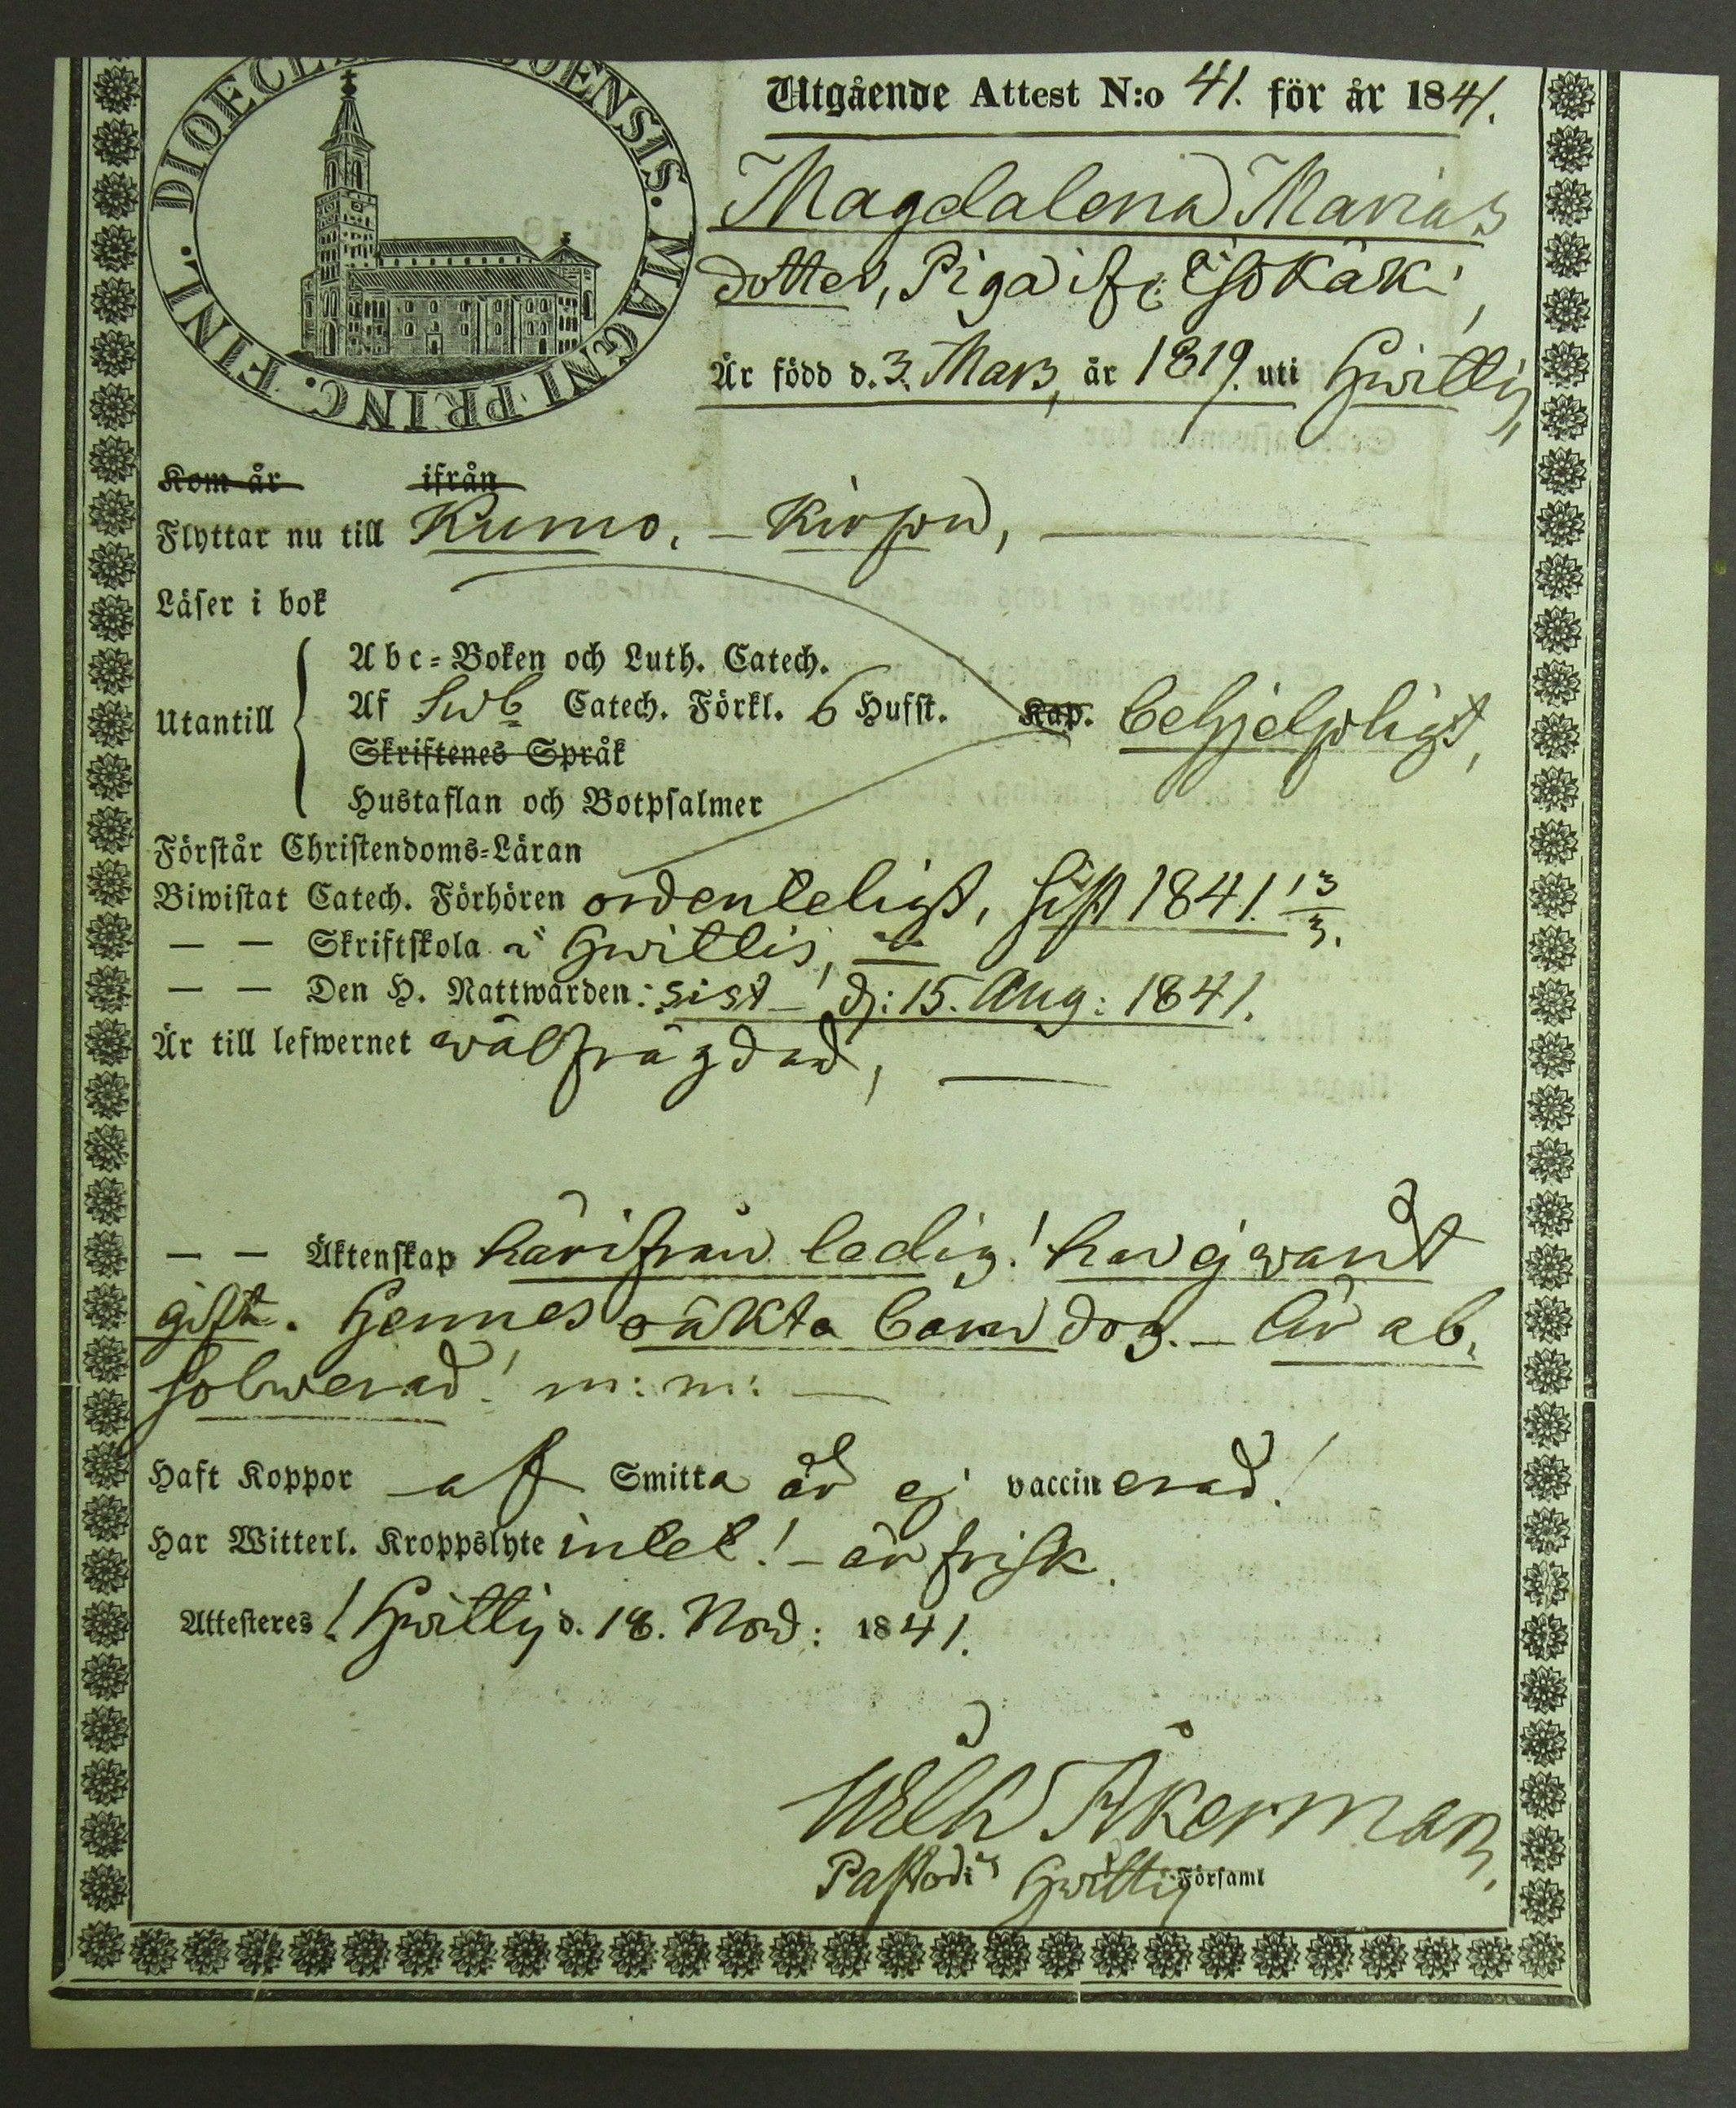 DIOECES ABOENSIS. MAGNI PRINC. FINL.
Utgående Attest N:o 41. för år 1841.
Magdalena Marias
dotter, Piga ifr:
Är född d. 3. Mars, år 1819. uti Hwittis,
Kom år ifrån
Flyttar nu till Kumo, –
Läser i bok
Abc-Boken och Luth. Catech.
Utantill Af Swb Catech. Förkl. 6 Hufst. Kap. behjelpligt,
Skriftenes Språk
Hustaflan och Botpsalmer
Förstår Christendoms-Läran
Biwistat Catech. Förhören ordenteligt, sist 1841. 13/3.
— — Skriftskola i Hwittis, —
— — Den H. Nattwarden: sist – d: 15. Aug: 1841.
Är till lefwernet wälfrägdad, —
— — Äktenskap härifrån ledig! har ej warit
gift. Hennes oäkta barn dog. – Är ab-
solwerad! m: m: —
Haft Koppor af Smitta är ej vaccinerad!
Har Witterl. Kroppslyte intet! – är frisk.
Attesteres! Hwittis d. 18. Nov: 1841.
Wilh Åkerman,
Past i Hwittis Församl